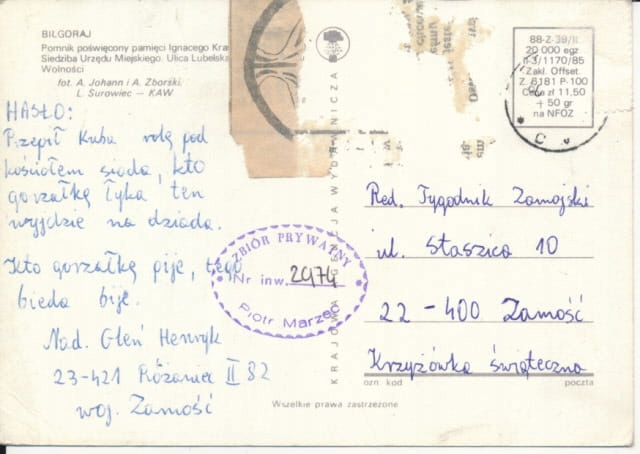 BIŁGORAJ
Pomnik poświęcony pamięci Ignacego
Siedziba Urzędu Miejskiego. Ulica Lubelska
Wolności
fot. A. Johann i A. Zborski,
L. Surowiec — KAW
HASŁO:
Przepił Kuba rolę pod
kościołem siada, kto
gorzałkę łyka ten
wyjdzie na dziada.
Kto gorzałkę pije, tego
bieda bije.
Nad. Gleń Henryk
23-421 Różaniec II 82
woj. Zamość
ZBIÓR PRYWATNY
Nr inw. 2974
Piotr
KRAJOWA
WYDAWNICZA
88-Z-39/II
20 000 egz
II-3/1170/85
Zakł. Offset.
Z. 8181 P-100
Cena zł 11,50
+ 50 gr
na NFOZ
Red. Tygodnik Zamojski
ul. Staszica 10
22-400 Zamość
Krzyżówka świąteczna
ozn kod
poczta
Wszelkie prawa zastrzeżone